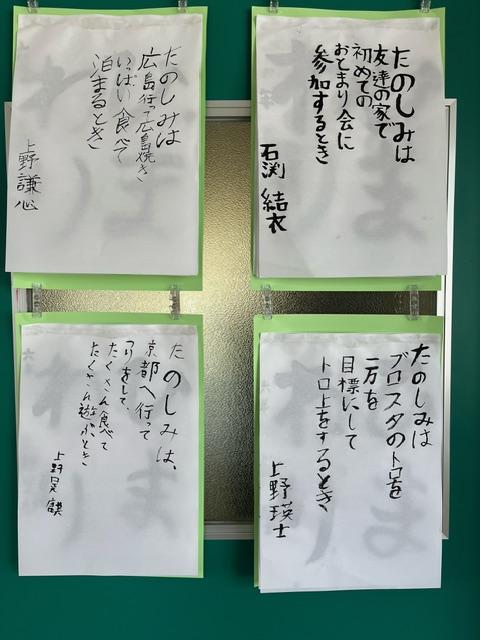 たのしみは
友達の家で
初めての
おとまり会に
参加するとき
石渕 結衣
たのしみは
広島行って広島焼き
いっぱい食べて
泊まるとき
上野謙心
たのしみは
ブロスタのトロを
一万を
目標にして
トロ上をするとき
上野瑛士
たのしみは、
京都へ行って
つりをして、
たくさん食べて
たくさん遊ぶとき
上野